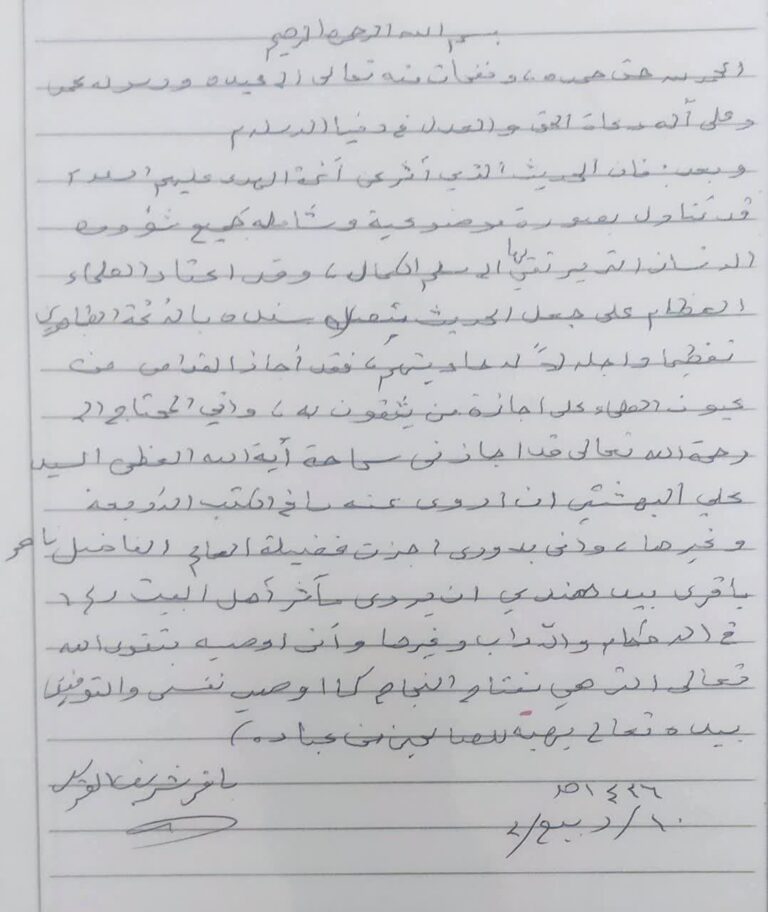 بسم الله الرحمن الرحيم
الحمد لله حق حمده، ونفحات منه تعالى الى عبده ورسوله محمد
وعلى آله دعاة الحق والعدل في دنيا الاسلام
وبعد: فان الحديث الذي أثر عن أئمة الهدى عليهم السلام
قد تناول بصورة موضوعية وشاملة جميع شؤون
الانسان التي يرتقي بها الى سلم الكمال، وقد اعتاد العلماء
العظام على جعل الحديث يتصل سنده بالأئمة الطاهرين
تعظيما واجلالاً لأحاديثهم، فقد أجاز القدامى من
عيون العلماء على اجازة من يثقون به، واني المحتاج الى
رحمة الله تعالى قد اجازني سماحة آية الله العظمى السيد
علي البهشتي ان اروي عنه ما في الكتب الأربعة
وغيرها، واني بدوري اجزت فضيلة العالم الفاضل ناصر
باقري بيد هندي ان يروي مآثر أهل البيت (ع)
في الاحكام والآداب وغيرها وأني اوصيه بتقوى الله
تعالى التي هي مفتاح النجاح كما اوصي نفسي والتوفيق
بيده تعالى يهبه للصالحين من عباده)
باقر شريف القرشي
١٤٢٦ هـ
١٠/ ربيع/ ٢